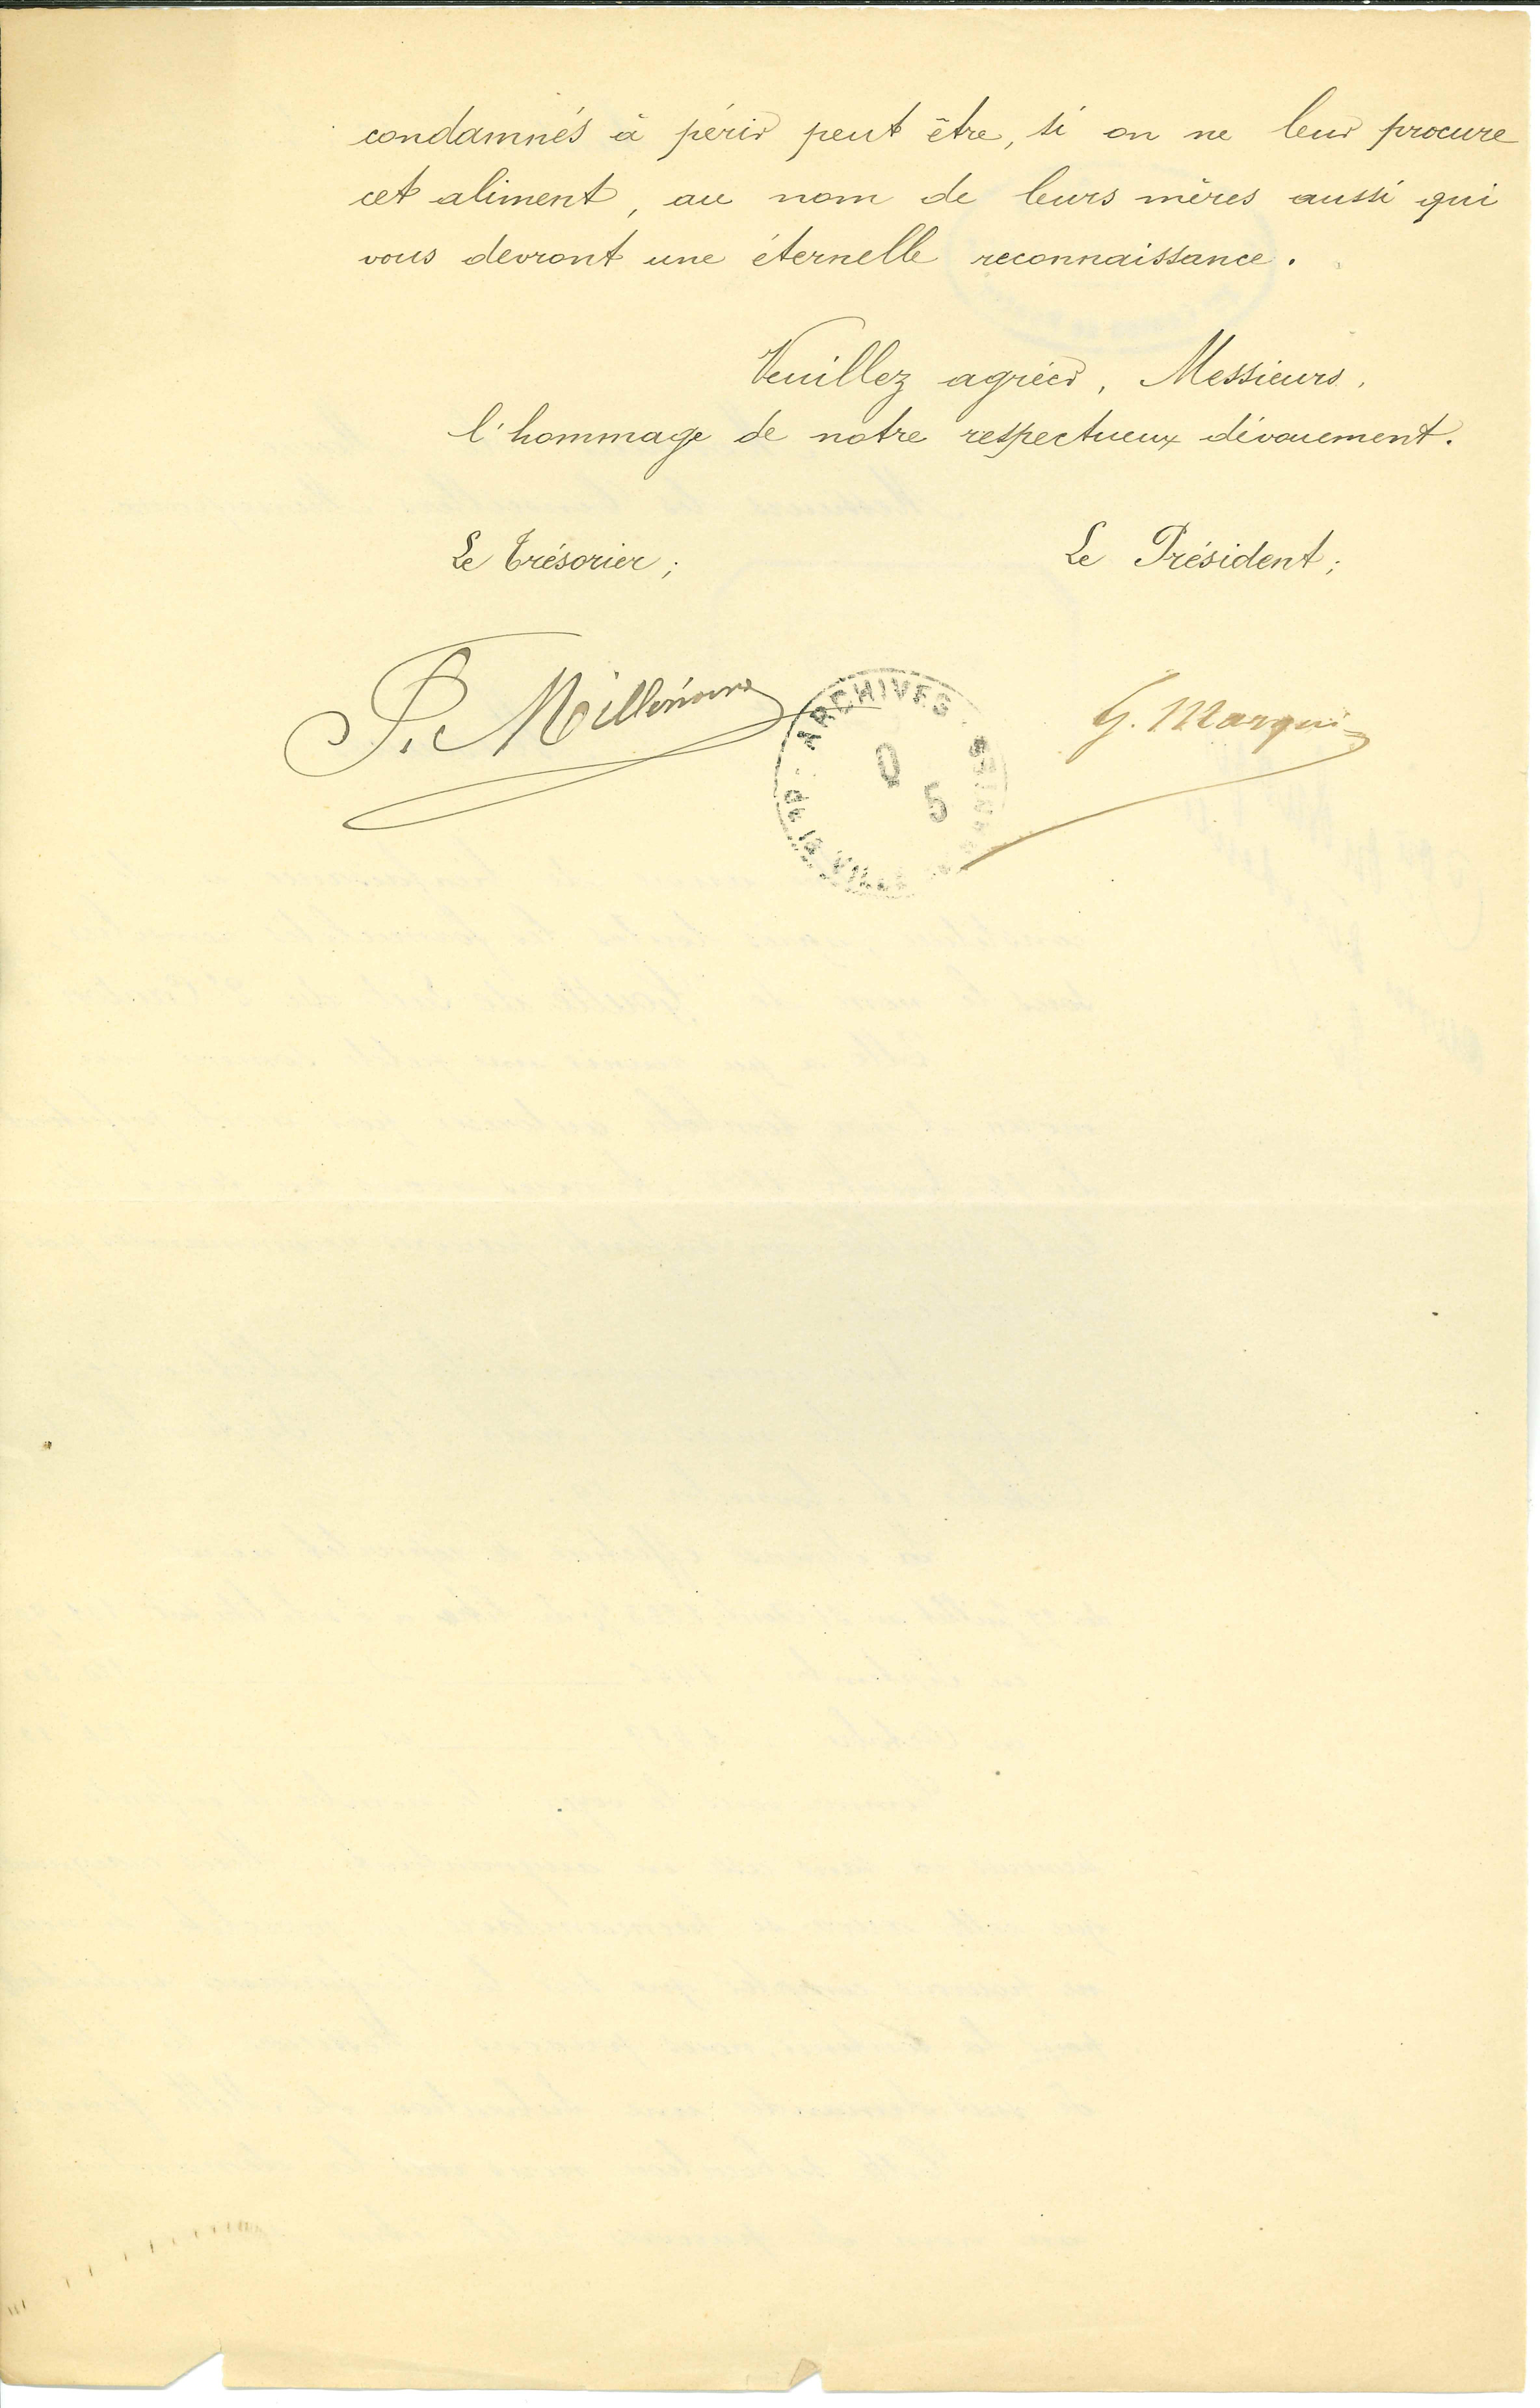 condamnés à périr peut être, si on ne leur procure
cet aliment, au nom de leurs mères aussi qui
vous devront une éternelle reconnaissance.
Veuillez agréer, Messieurs,
l'hommage de notre respectueux dévouement.
Le Trésorier;
Le Président;
P. Millenoeuf
G. Marquis
ARCHIVES
DE LA VILLE
0
5